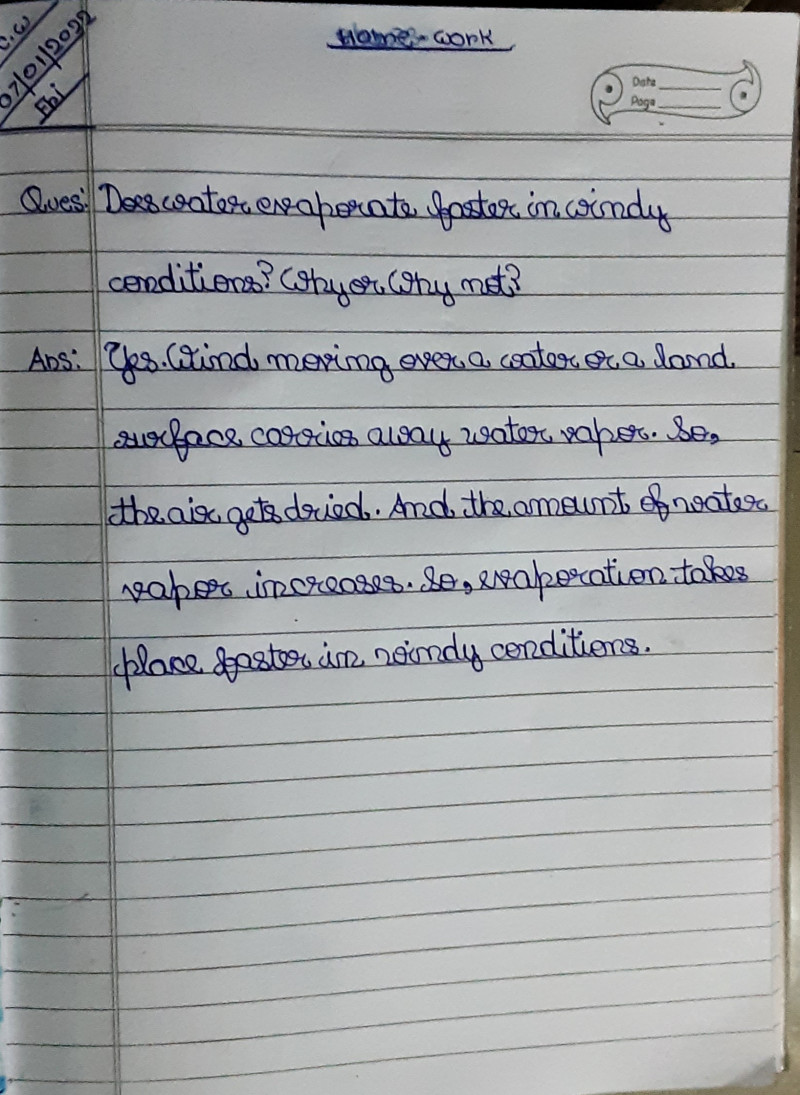 C.W
07/01/2022
Fri
Home-work
Date
Page
Ques: Does water evaporate faster in windy
conditions? Why or Why not?
Ans: Yes. Wind moving over a water or a land
surface carries away water vapor. So,
the air gets dried. And the amount of water
vapor increases. So, evaporation takes
place faster in windy conditions.